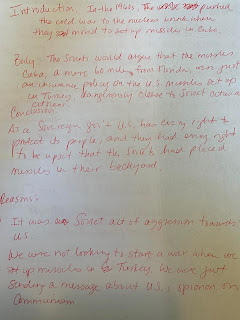 Introduction, In the 1960s, The pushed
the cold war to the nuclear brink when
they moved to set up missiles in Cuba.
Body. The Soviets would argue that the missiles
Cuba, a mere 60 miles from Florida, were just
an insurance policy on the U.S. missiles set up
in Turkey, dangerously close to Soviet
citizens.
Conclusion:
As a Sovereign gov't U.S. has every right to
protect its people, and they had every right
to be upset that the Soviets had placed
missiles in their backyard.
Reasons:
It was Soviet act of aggression towards
US
We were not looking to start a war when we
set up missiles in Turkey. We were just
sending a message about U.S. opinion on
Communism